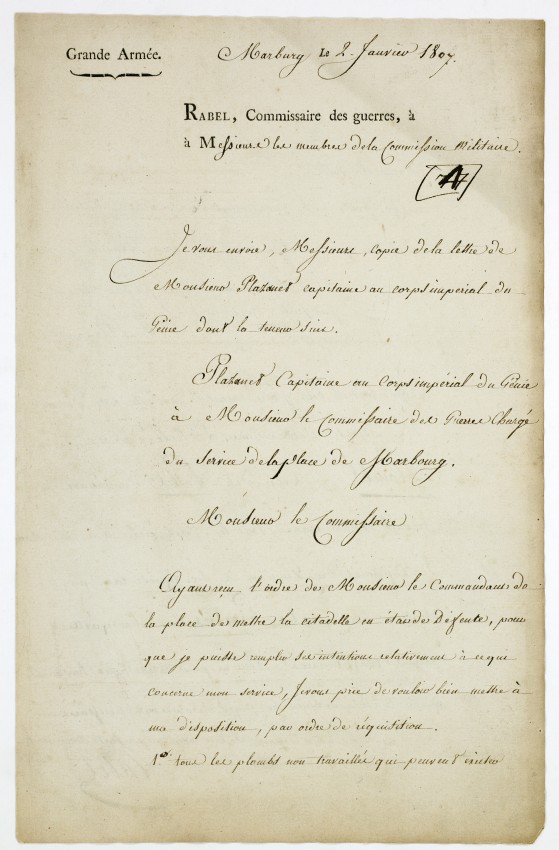 Grande Armée.
Marburg Le 2. Janvier 1807.
RABEL, Commissaire des guerres, à
à Messieurs les membres de la Commission Militaire.
Je vous envoie, Messieurs, copie de la lettre de
Monsieur Plazanet capitaine au corps impérial du
Génie dont la teneur suit.
Plazanet Capitaine au Corps impérial du Génie
à Monsieur le Commissaire des Guerres Chargé
du service de la place de Marbourg.
Monsieur le Commissaire
Ayant reçu l'ordre de Monsieur le Commandant de
la place de mettre la citadelle en état de Défense, pour
que je puisse remplir ses intentions relativement à ce qui
concerne mon service, Je vous prie de vouloir bien mettre à
ma disposition, par ordre de réquisition.
1.º tous les plombs non travaillés qui peuvent exister